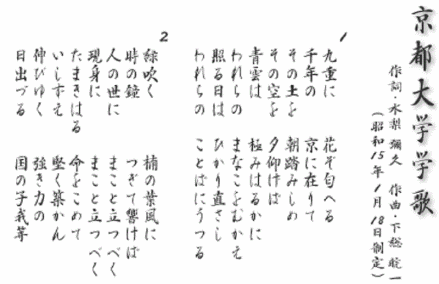 京都大学学歌
作詞・水梨 彌久 作曲・下総 皖一
(昭和15年1月18日制定)
1
九重に 花ぞ匂へる
千年の 京に在りて
その土を 朝踏みしめ
その空を 夕仰げば
青雲は 極みはるかに
われらの まなこをむかえ
照る日は ひかり直さし
われらの ことばにうつる
2
緑吹く 楠の葉風に
時の鐘 つぎて響けば
人の世に まこと立つべく
現身に まこと立つべく
たまきはる 命をこめて
いしずえ 堅く築かん
伸びゆく 強き力の
日出づる 国の子我等